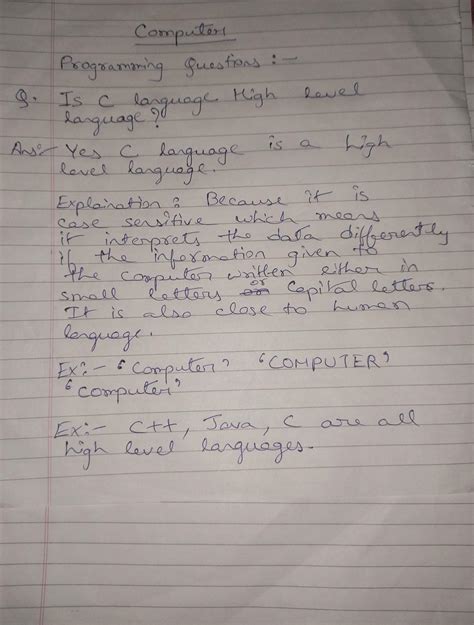 Computers
Programming Questions :-
Q. Is C language High level
language?
Ans:- Yes C language is a high
level language.
Explaination : Because it is
case sensitive which means
it interprets the data differently
if the information given to
the computer written either in
small letters or capital letters.
It is also close to human
language.
Ex:- 'Computer' 'COMPUTER'
'computer'
Ex:- C++, Java, C are all
high level languages.